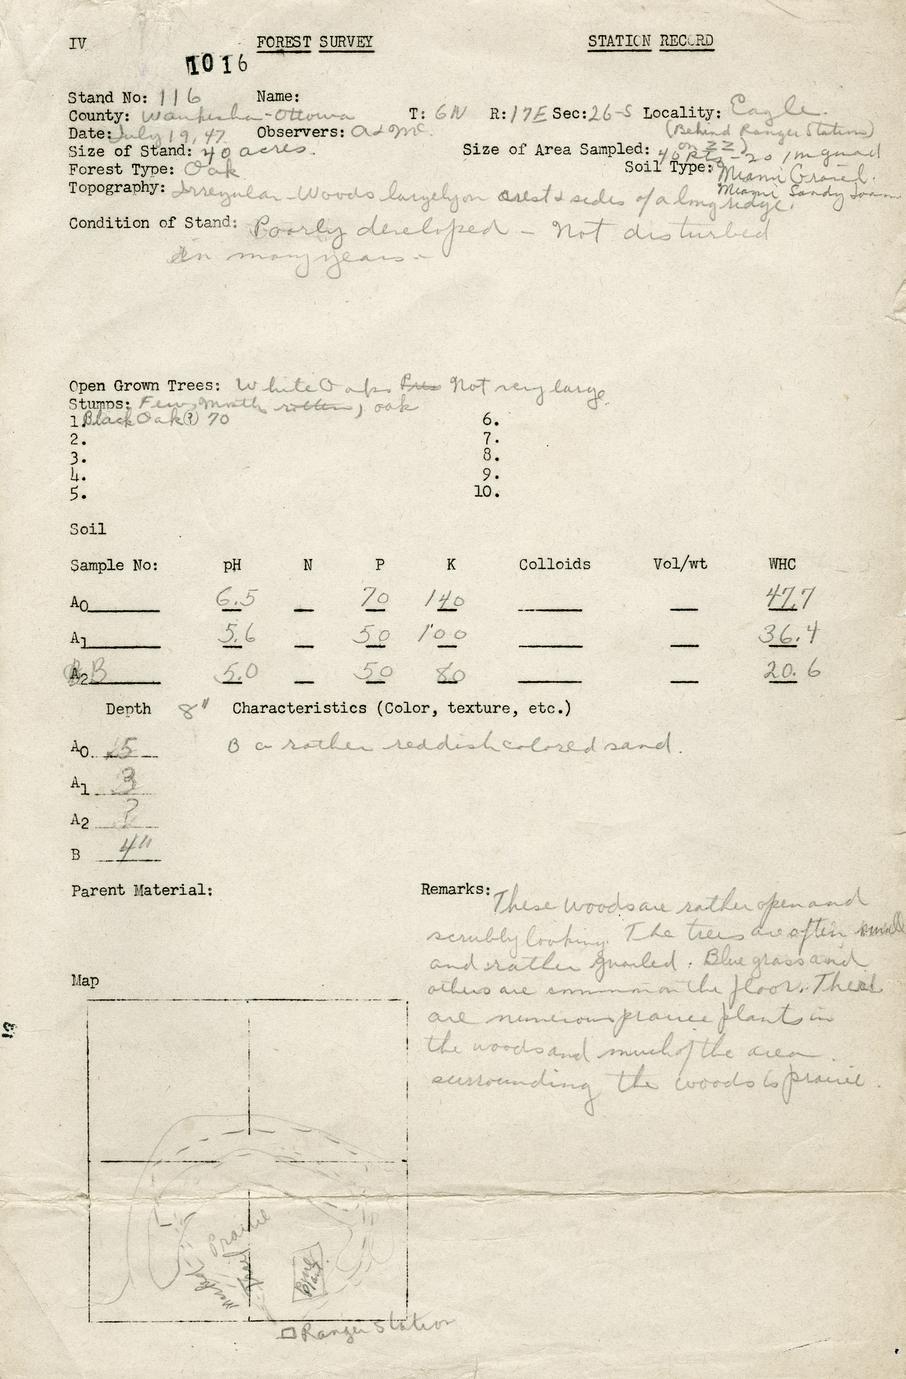 IV FOREST SURVEY STATION RECORD
1016
Stand No: 116 Name:
County: Waukesha-Ottowa T: 6N R: 17E Sec: 26-S Locality: Eagle.
(Behind Ranger Station)
Date: July 19, 47 Observers: A & Mc. on ZZ)
Size of Stand: 40 acres. Size of Area Sampled: 40 pts - 20 1m quad
Forest Type: Oak Soil Type: Miami Gravel.
Miami Sandy loam
Topography: Irregular - Woods largely on crest & sides of a long ridge.
Condition of Stand: Poorly developed - Not disturbed
in many years -
Open Grown Trees: White Oaks Not very large
Stumps: Few, rotten, oak
1. Black Oak(?) 70 6.
2. 7.
3. 8.
4. 9.
5. 10.
Soil
Sample No: pH N P K Colloids Vol/wt WHC
A0 6.5 70 140 47.7
A1 5.6 50 100 36.4
A2 B 5.0 50 80 20.6
Depth 8" Characteristics (Color, texture, etc.)
A0 .5 B a rather reddish colored sand.
A1 3
A2 ?
B 4"
Parent Material: Remarks: These woods are rather open and
scrubby looking. The trees are often small
and rather gnarled. Blue grass and
others are common on the floor. There
are numerous prairie plants in
the woods and much of the area
surrounding the woods is prairie.
Map
19
Prairie
Pine
Plant.
Ranger Station